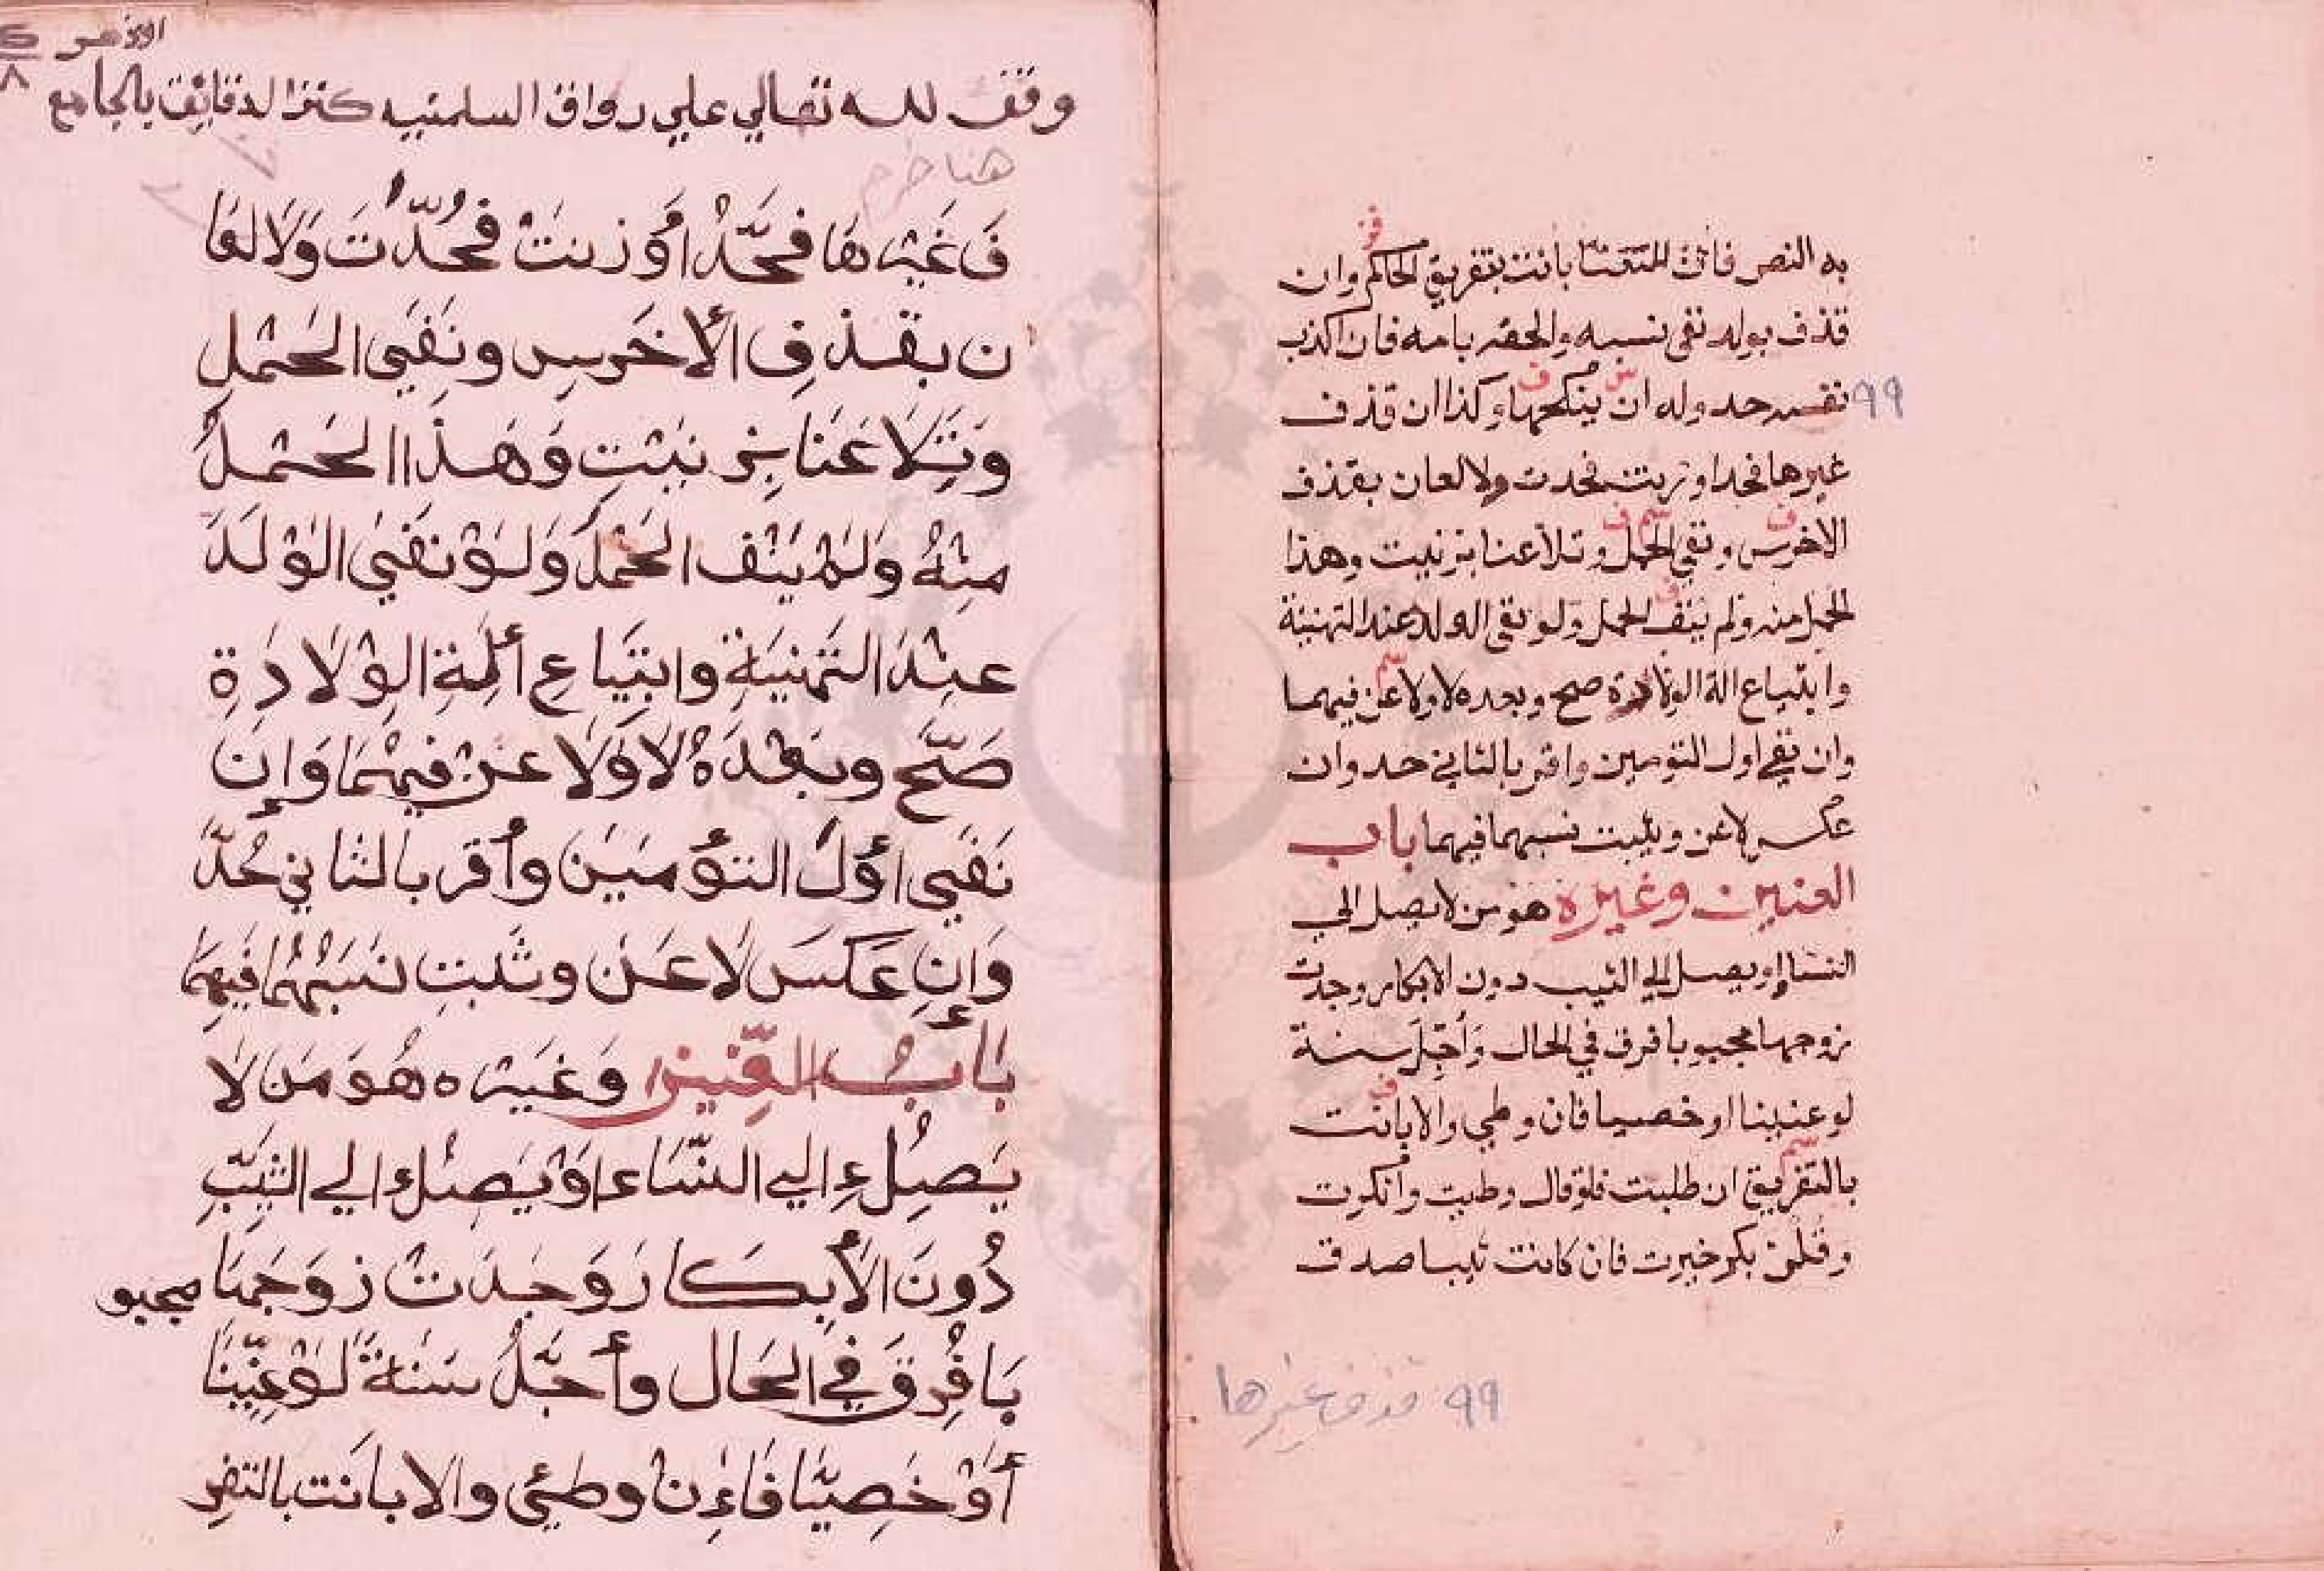 به النص فان التعنا بانت بتفريق الحاكم وان
قذف بولد نفى نسبه والحقه بامه فان اكذب
٩٩ نفسه حد وله ان ينكحها وكذا ان قذف
غيرها فحد او زنت فحدت ولا لعان بقذف
الاخرس ونفى الحمل وتلاعنا بزنيت وهذا
الحمل منه ولم ينف الحمل ولو نفى الولد عند التهنية
وابتياع الة الولادة صح وبعده لا ولاعن فيهما
وان نفى اول التومين واقر بالثاني حد وان
عكس لاعن ويثبت نسبهما فيهما باب
العنين وغيره هو من لا يصل الى
النسا او يصل الى الثيب دون الابكار وجدت
زوجها مجبوبا فرق في الحال وأجل سنة
لو عنينا او خصيا فان وطي والا بانت
بالتفريق ان طلبت فلو قال وطيت وانكرت
وقلن بكر خيرت فان كانت ثيبا صدق
٩٩ قذف غيرها
الازهر
٨
وقف لله تعالي علي رواق السلمنيه كنز الدقايق بالجامع
هنا خرم
فَ غَيْرهَا فحَّدْ اَوْ زنتْ فحُدّتَ وَلَا لعَا
ن بقذفِ الأخَرسِ ونَفَي الحَمْلِ
وَتَلَاعَنَا بِزنيْتِ وَهَذا الحَمْلُ
مِنْهُ وَلَمْ يَنْف الحَمْلَ وَلَوْ نَفَي الوْلَدَ
عِنْدَ التَهْنيَةِ وابتيَاعِ ألَةِ الوِلَادَةِ
صَحَّ وبَعْدَهُ لا وَلَا عنْ فيهْمَا وَإن
نَفَي أوَلَ التوْمَيْن وأقر بالثاني حُدّ
وَإنِ عَكسَ لَاعَن وثَبت نسَبْهُمَا فَيهِمَا
بَابُ العِّنين وَغَيْره هُوَ مَن لَا
يَصِلُ إلي النّسَاء اوَْ يَصِلُ الي الثيِّبِ
دُونَ الأبكَار وَجَدَتْ زوَجهَا مجبو
بَا فُرِقَ في الحَال وأجَّلُ سَنَةً لَوْ عِنّينَا
أوْ خَصِيًّا فَإِنْ وطئي والا بانَت بالتفر